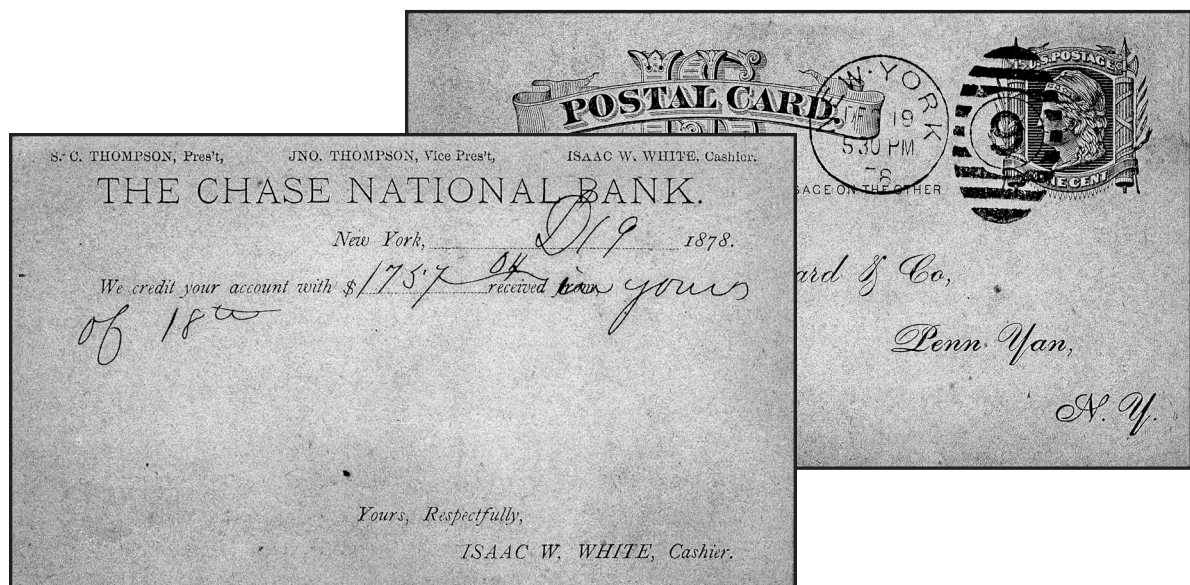 U.S. POSTAGE
POSTAL CARD.
ONE CENT
W. YORK
DE 19
5 30 PM
78
9
SAGE ON THE OTHER
ard & Co,
Penn Yan,
N. Y.
S. C. THOMPSON, Pres't, JNO. THOMPSON, Vice Pres't, ISAAC W. WHITE, Cashier.
THE CHASE NATIONAL BANK.
New York, D 19 1878.
We credit your account with $1757 04 received in yours
of 18th
Yours, Respectfully,
ISAAC W. WHITE, Cashier.